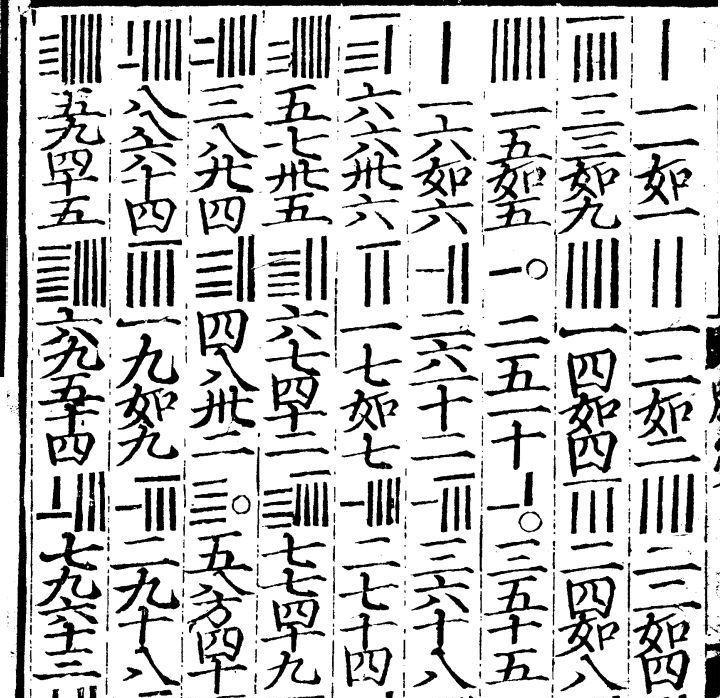 一一如一 一二如二 二二如四
三三如九 一四如四 二四如八
一五如五 二五一十 三五十五
一六如六 二六十二 三六十八
六六卅六 一七如七 二七十四
五七卅五 六七四十二 七七四十九
三八廿四 四八卅二 五八方四十
八八六十四 一九如九 二九十八
五九四十五 六九五十四 七九六十三